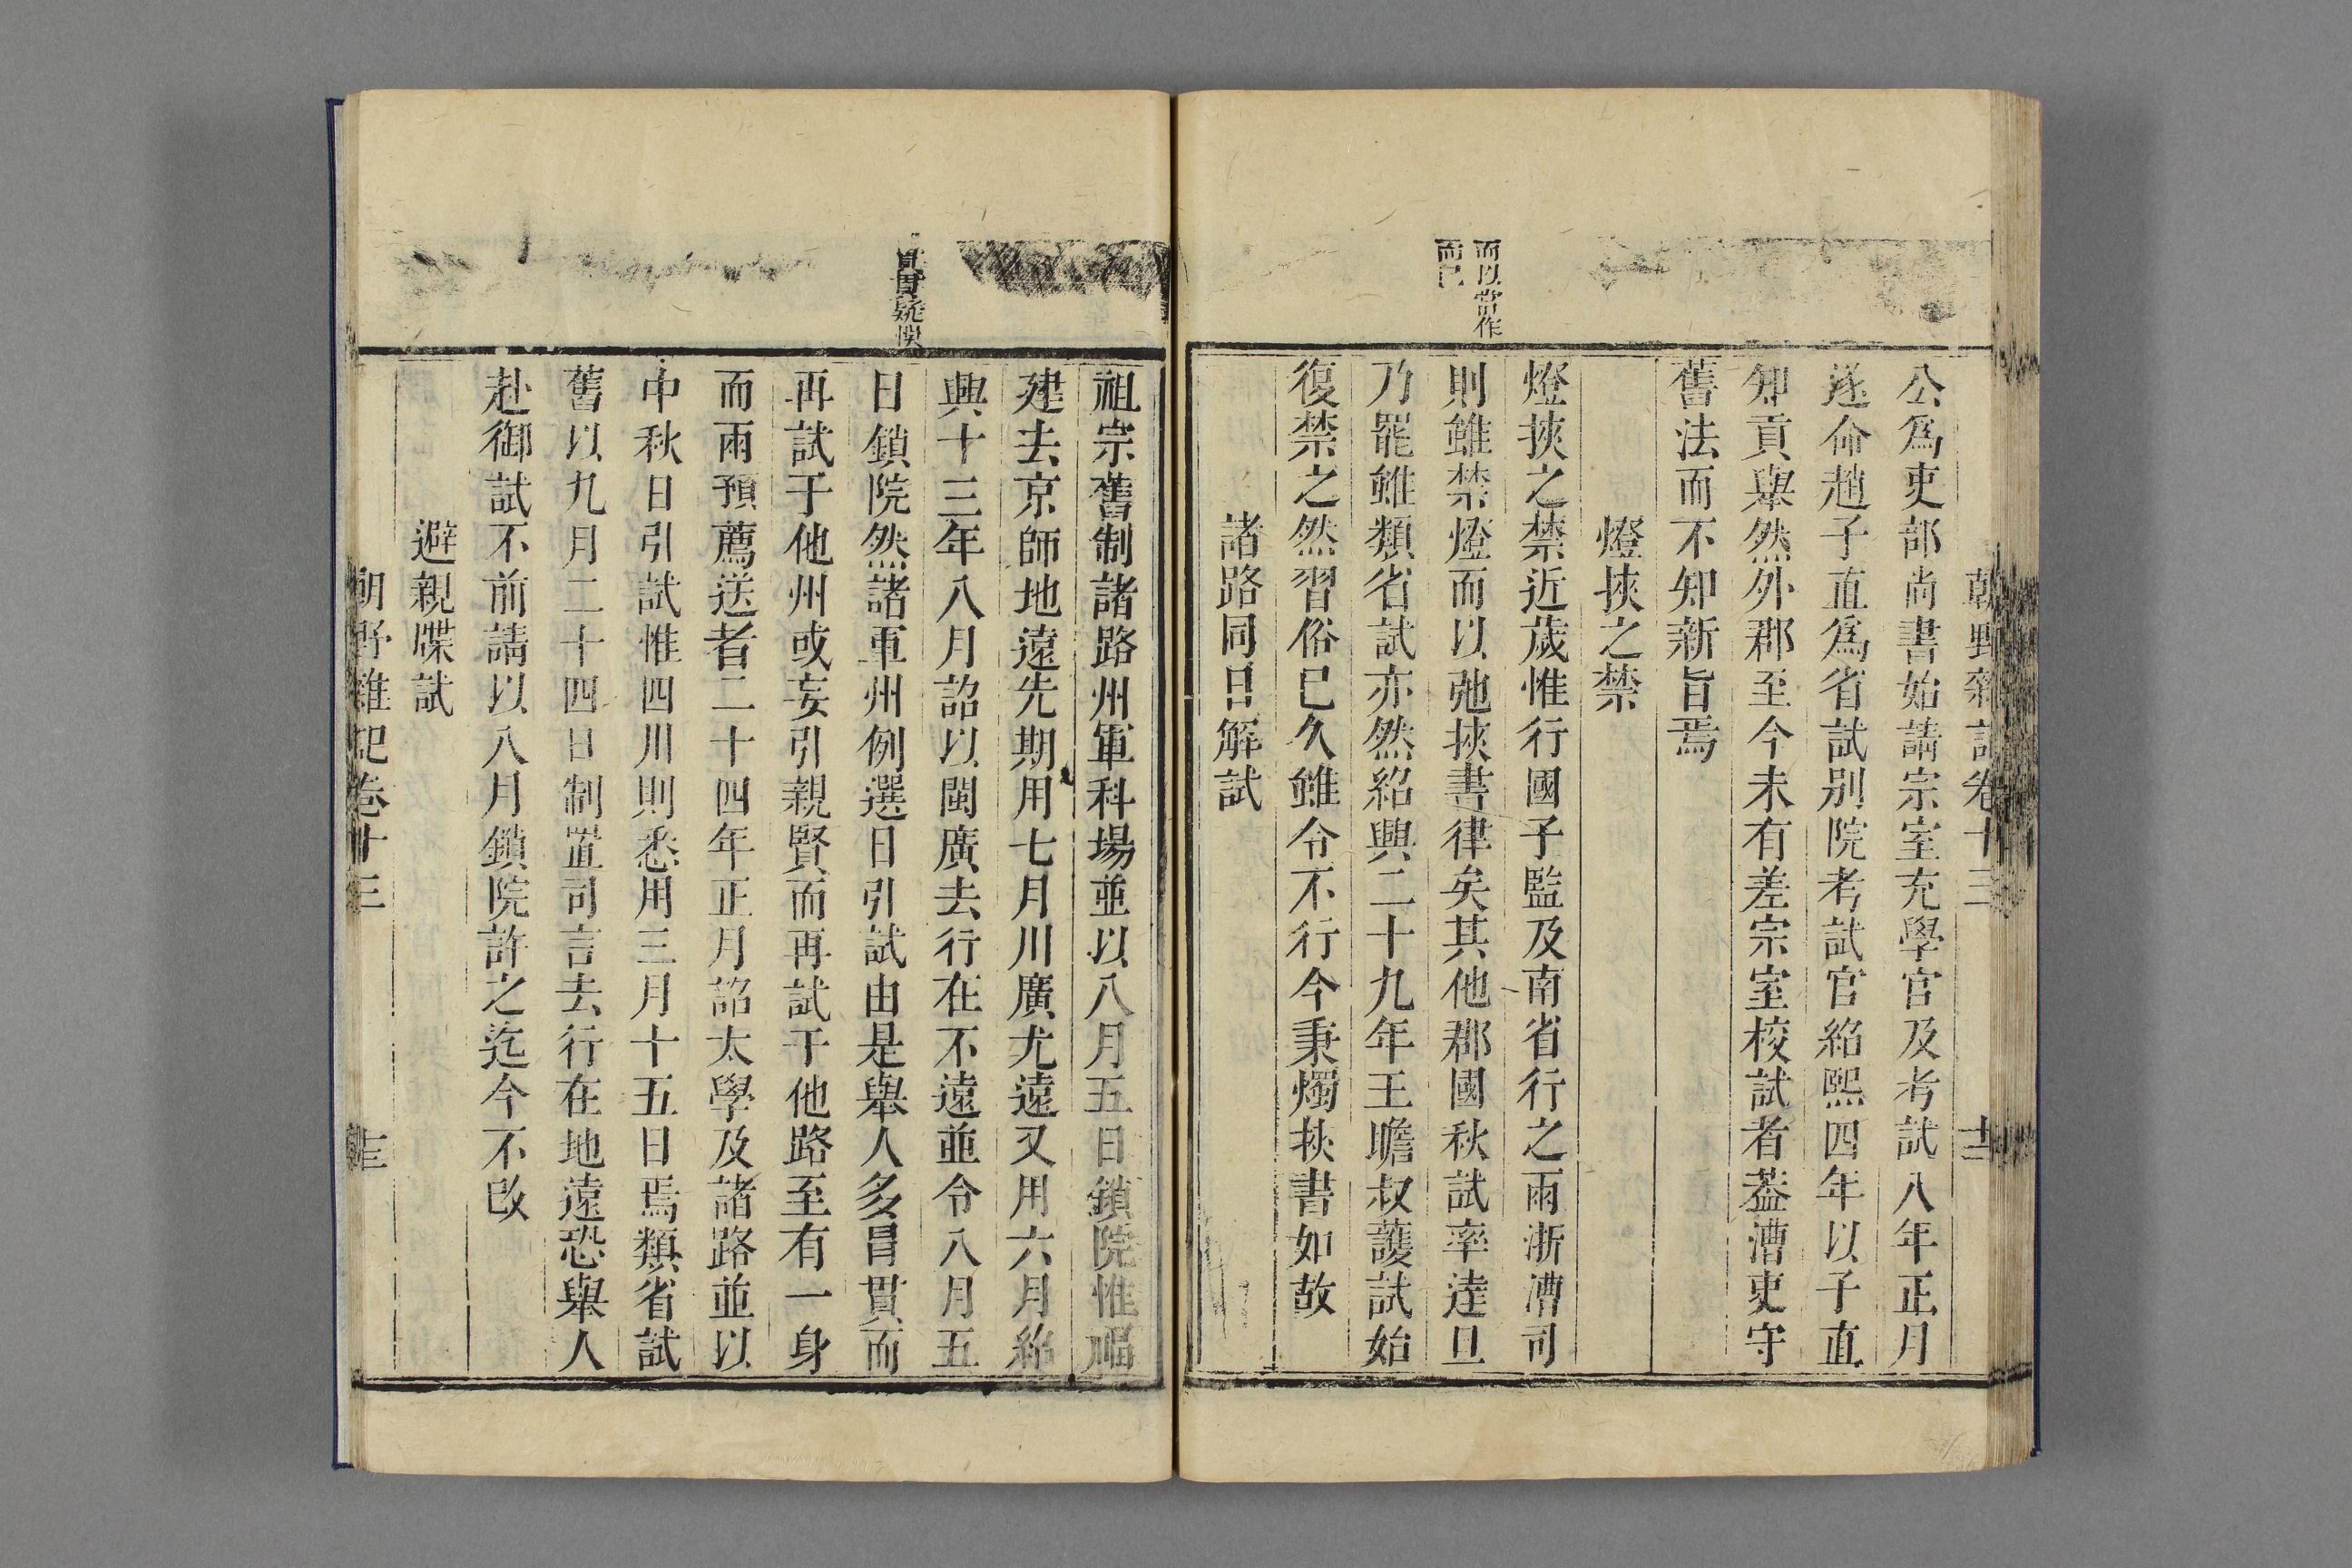 朝野雜記卷十三
十二
公爲吏部尚書始請宗室充學官及考試八年正月
遂命趙子直爲省試別院考試官紹熙四年以子直
知貢舉然外郡至今未有差宗室校試者葢漕吏守
舊法而不知新旨焉
燈挾之禁
燈挾之禁近歲惟行國子監及南省行之兩浙漕司
則雖禁燈而以弛挾書律矣其他郡國秋試率逹旦
乃罷雖類省試亦然紹興二十九年王瞻叔護試始
復禁之然習俗已久雖令不行今秉燭挾書如故
諸路同日解試
而以當作
而已
祖宗舊制諸路州軍科場並以八月五日鎖院惟福
建去京師地遠先期用七月川廣尤遠又用六月紹
興十三年八月詔以閩廣去行在不遠並令八月五
日鎖院然諸軍州例選日引試由是舉人多冒貫而
再試于他州或妄引親賢而再試于他路至有一身
而兩預薦送者二十四年正月詔太學及諸路並以
中秋日引試惟四川則悉用三月十五日焉類省試
舊以九月二十四日制置司言去行在地遠恐舉人
赴御試不前請以八月鎖院許之迄今不改
避親牒試
冒貫疑悞
朝野雜記卷十三
十三